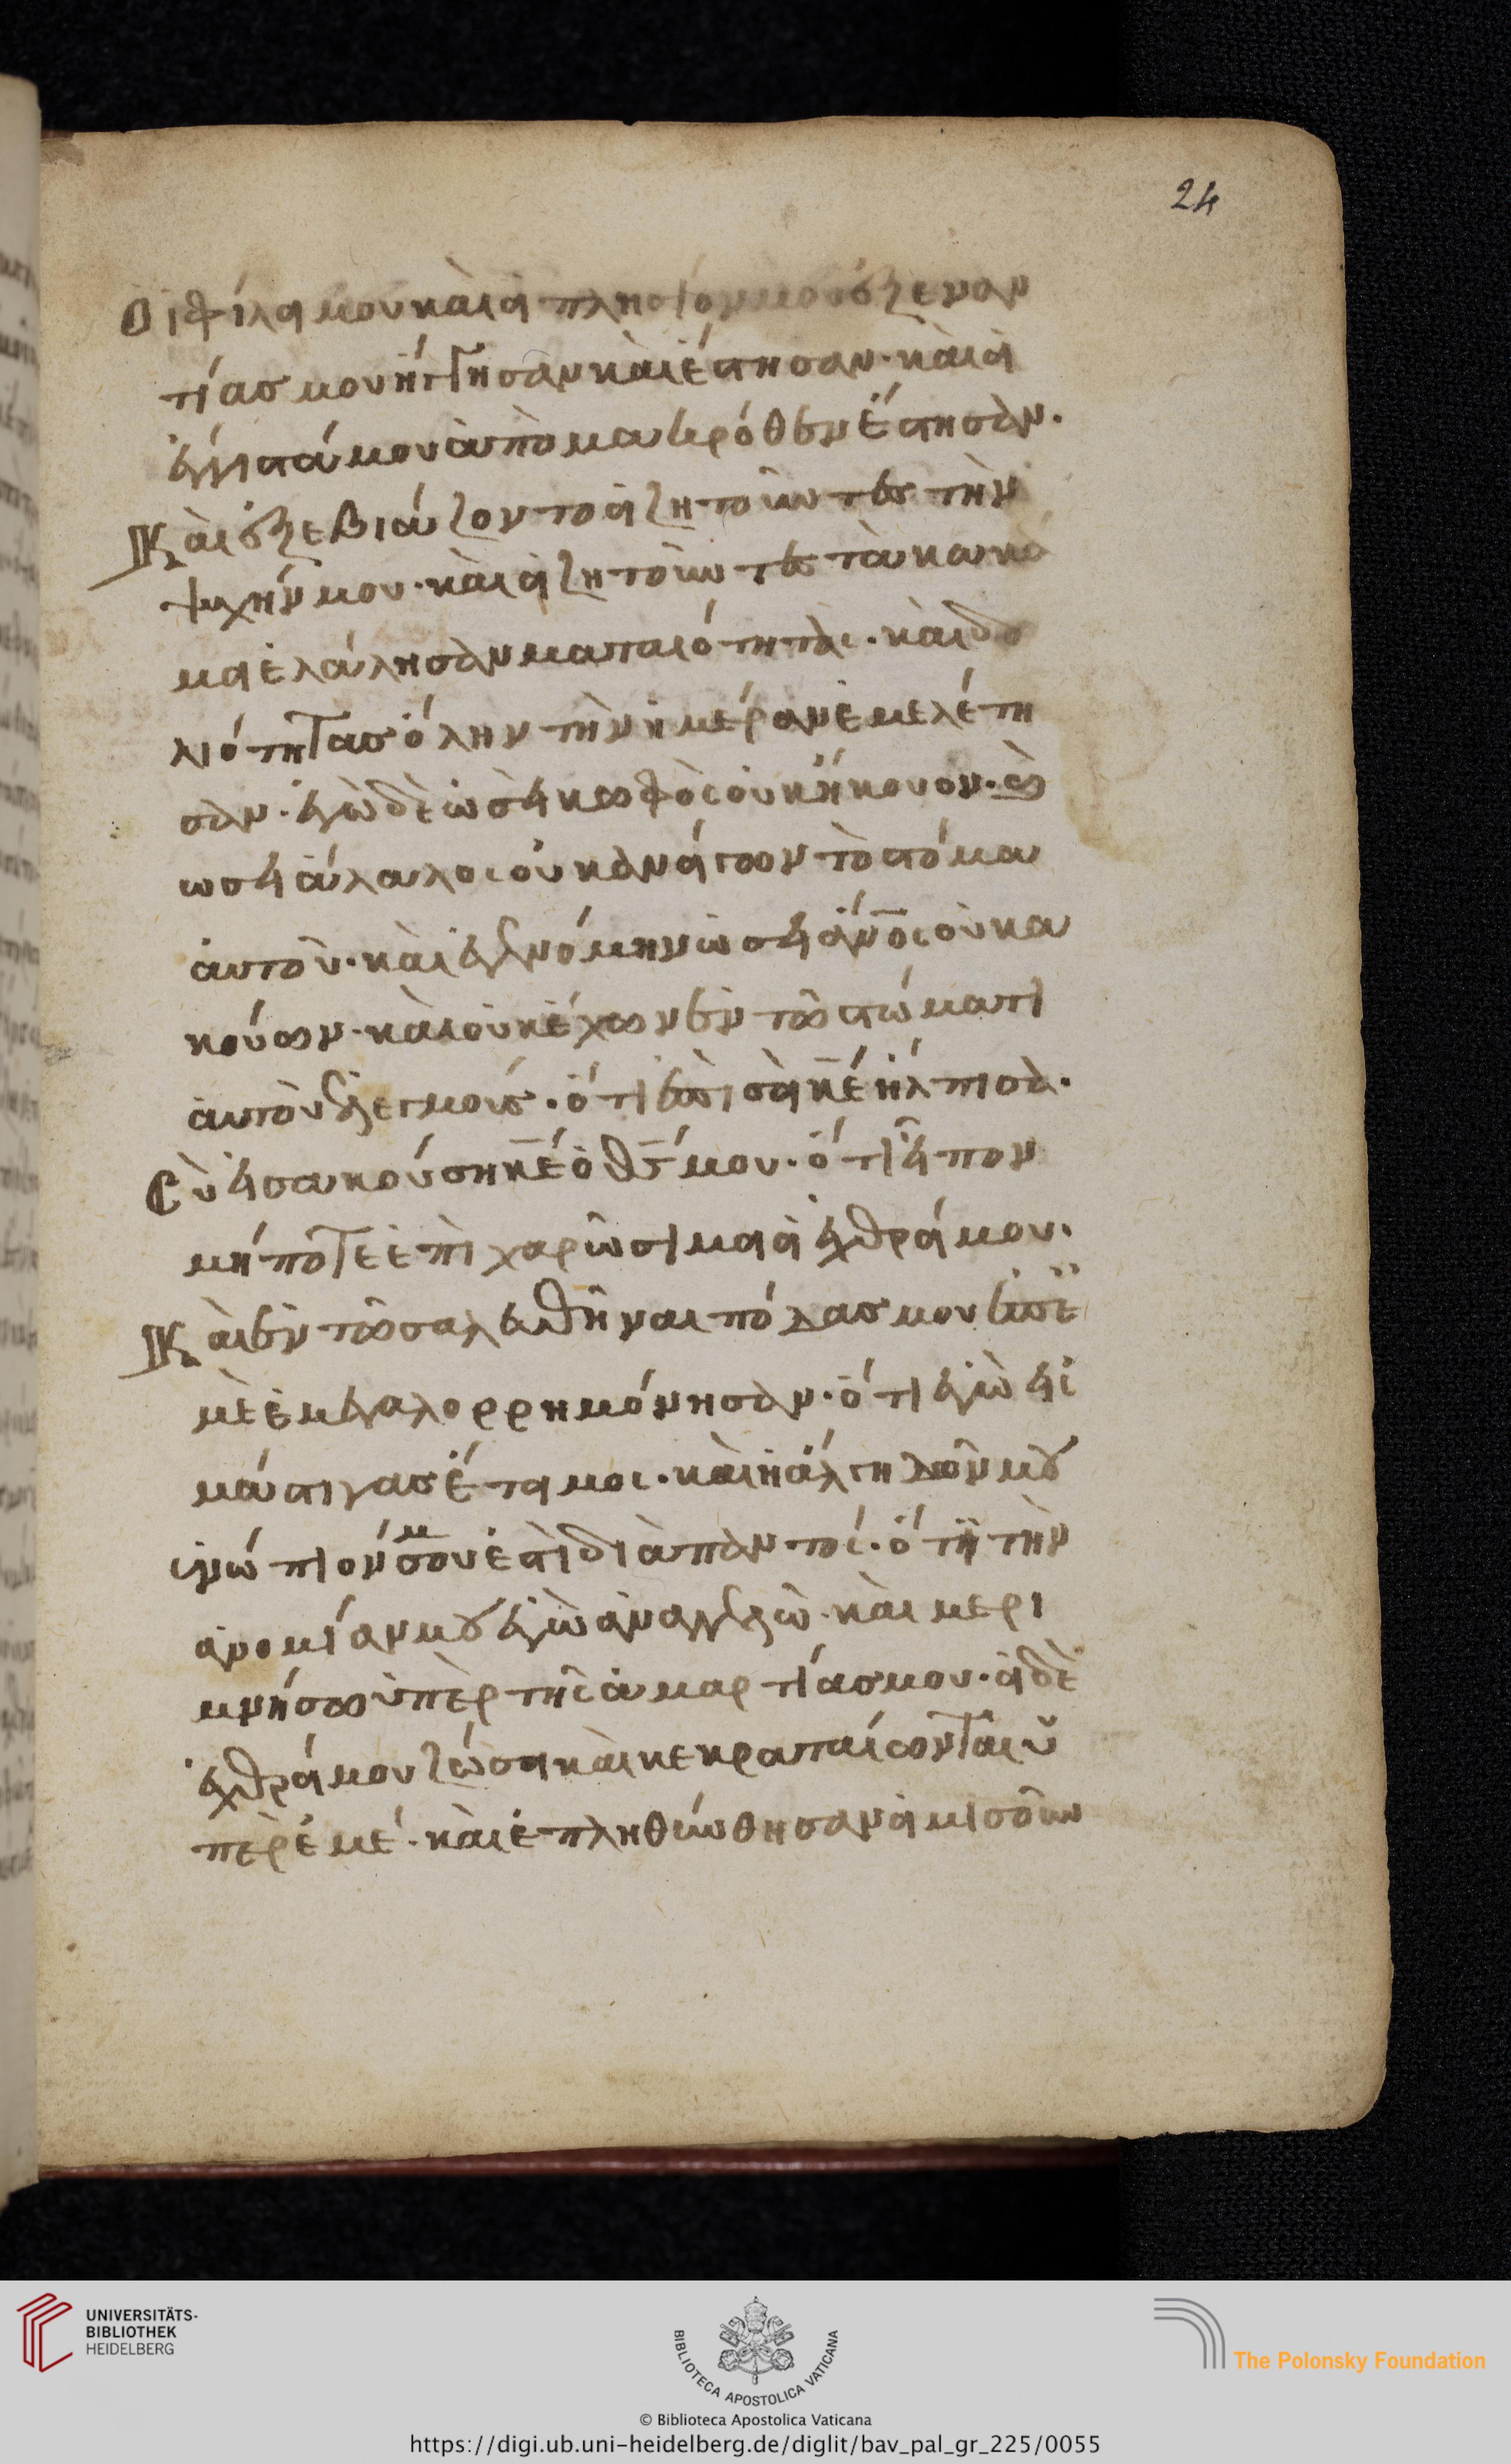 24
Οἱ φίλοι μου καὶ οἱ πλησίον μου ἐξ ἐναν
τίας μου ἤγγισαν καὶ ἔστησαν· καὶ οἱ
ἔγγιστά μου ἀπὸ μακρόθεν ἔστησαν.
Καὶ ἐξεβιάζοντο οἱ ζητοῦντες τὴν
ψυχήν μου· καὶ οἱ ζητοῦντες τὰ κακά
μοι ἐλάλησαν ματαιότητας· καὶ δο
λιότητας ὅλην τὴν ἡμέραν ἐμελέτη
σαν· ἐγὼ δὲ ὡσεὶ κωφὸς οὐκ ἤκουον· καὶ
ὡσεὶ ἄλαλος οὐκ ἀνοίγων τὸ στόμα
αὐτοῦ· καὶ ἐγενόμην ὡσεὶ ἄνος οὐκ ἀ
κούων· καὶ οὐκ ἔχων ἐν τῷ στόματι
αὐτοῦ ἐλεγμούς· ὅτι ἐπὶ σοὶ κε ἤλπισα.
Σὺ εἰσακούση κε ὁ θς μου· ὅτι εἶπον
μήποτε ἐπιχαρῶσι μοι οἱ ἐχθροί μου.
Καὶ ἐν τῷ σαλευθῆναι πόδας μου ἐπε
μὲ ἐμεγαλορρημόνησαν· ὅτι ἐγὼ εἰ
μάστιγας ἕτοιμος· καὶ ἡ ἀλγηδών μου
ἐνώπιόν μου ἐστὶ διὰ παντός· ὅτι τὴν
ἀνομίαν μου ἐγὼ ἀναγγελῶ· καὶ μερι
μνήσω ὑπὲρ τῆς ἁμαρτίας μου· οἱ δὲ
ἐχθροί μου ζῶσι καὶ κεκραταίωνται ὑ
πὲρ ἐμέ· καὶ ἐπληθύνθησαν οἱ μισοῦν
UNIVERSITÄTS-
BIBLIOTHEK
HEIDELBERG
BIBLIOTECA APOSTOLICA VATICANA
The Polonsky Foundation
© Biblioteca Apostolica Vaticana
https://digi.ub.uni-heidelberg.de/diglit/bav_pal_gr_225/0055